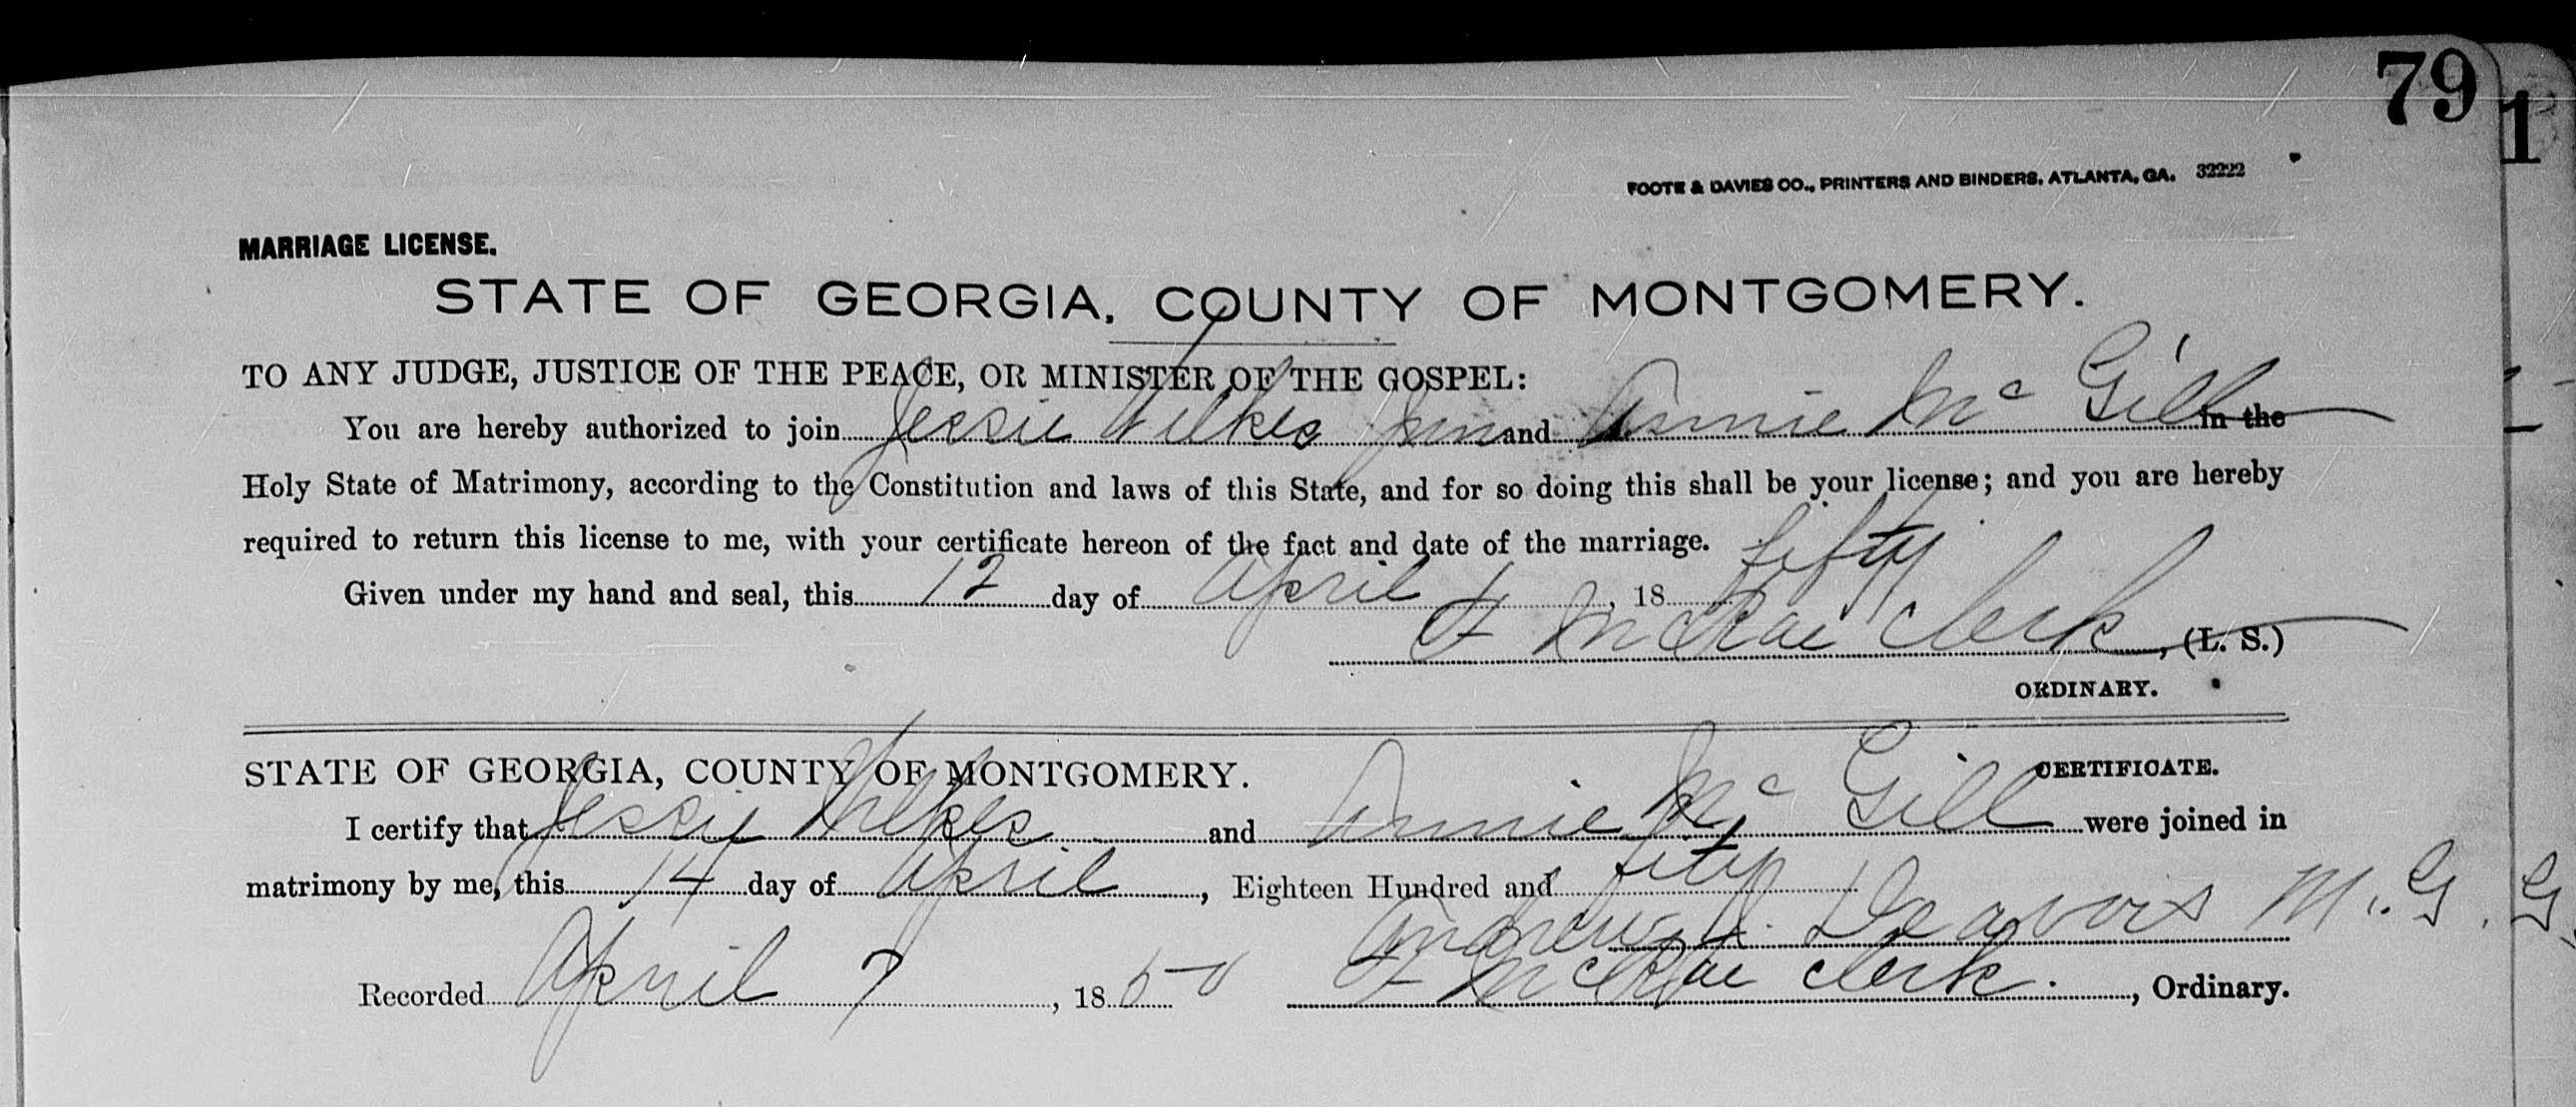 79
1
FOOTE & DAVIES CO., PRINTERS AND BINDERS, ATLANTA, GA. 32222
MARRIAGE LICENSE.
STATE OF GEORGIA, COUNTY OF MONTGOMERY.
TO ANY JUDGE, JUSTICE OF THE PEACE, OR MINISTER OF THE GOSPEL:
You are hereby authorized to join Jessie Wilkes Junr and Annie Mc Gill in the
Holy State of Matrimony, according to the Constitution and laws of this State, and for so doing this shall be your license; and you are hereby
required to return this license to me, with your certificate hereon of the fact and date of the marriage.
Given under my hand and seal, this 12 day of April, 18 fifty
McRae Clerk, (L. S.)
ORDINARY.
STATE OF GEORGIA, COUNTY OF MONTGOMERY. CERTIFICATE.
I certify that Jessie Wilkes and Annie Mc Gill were joined in
matrimony by me, this 14 day of April, Eighteen Hundred and fifty
Andrew M. G. G
Recorded April 7, 1850 McRae Clerk., Ordinary.